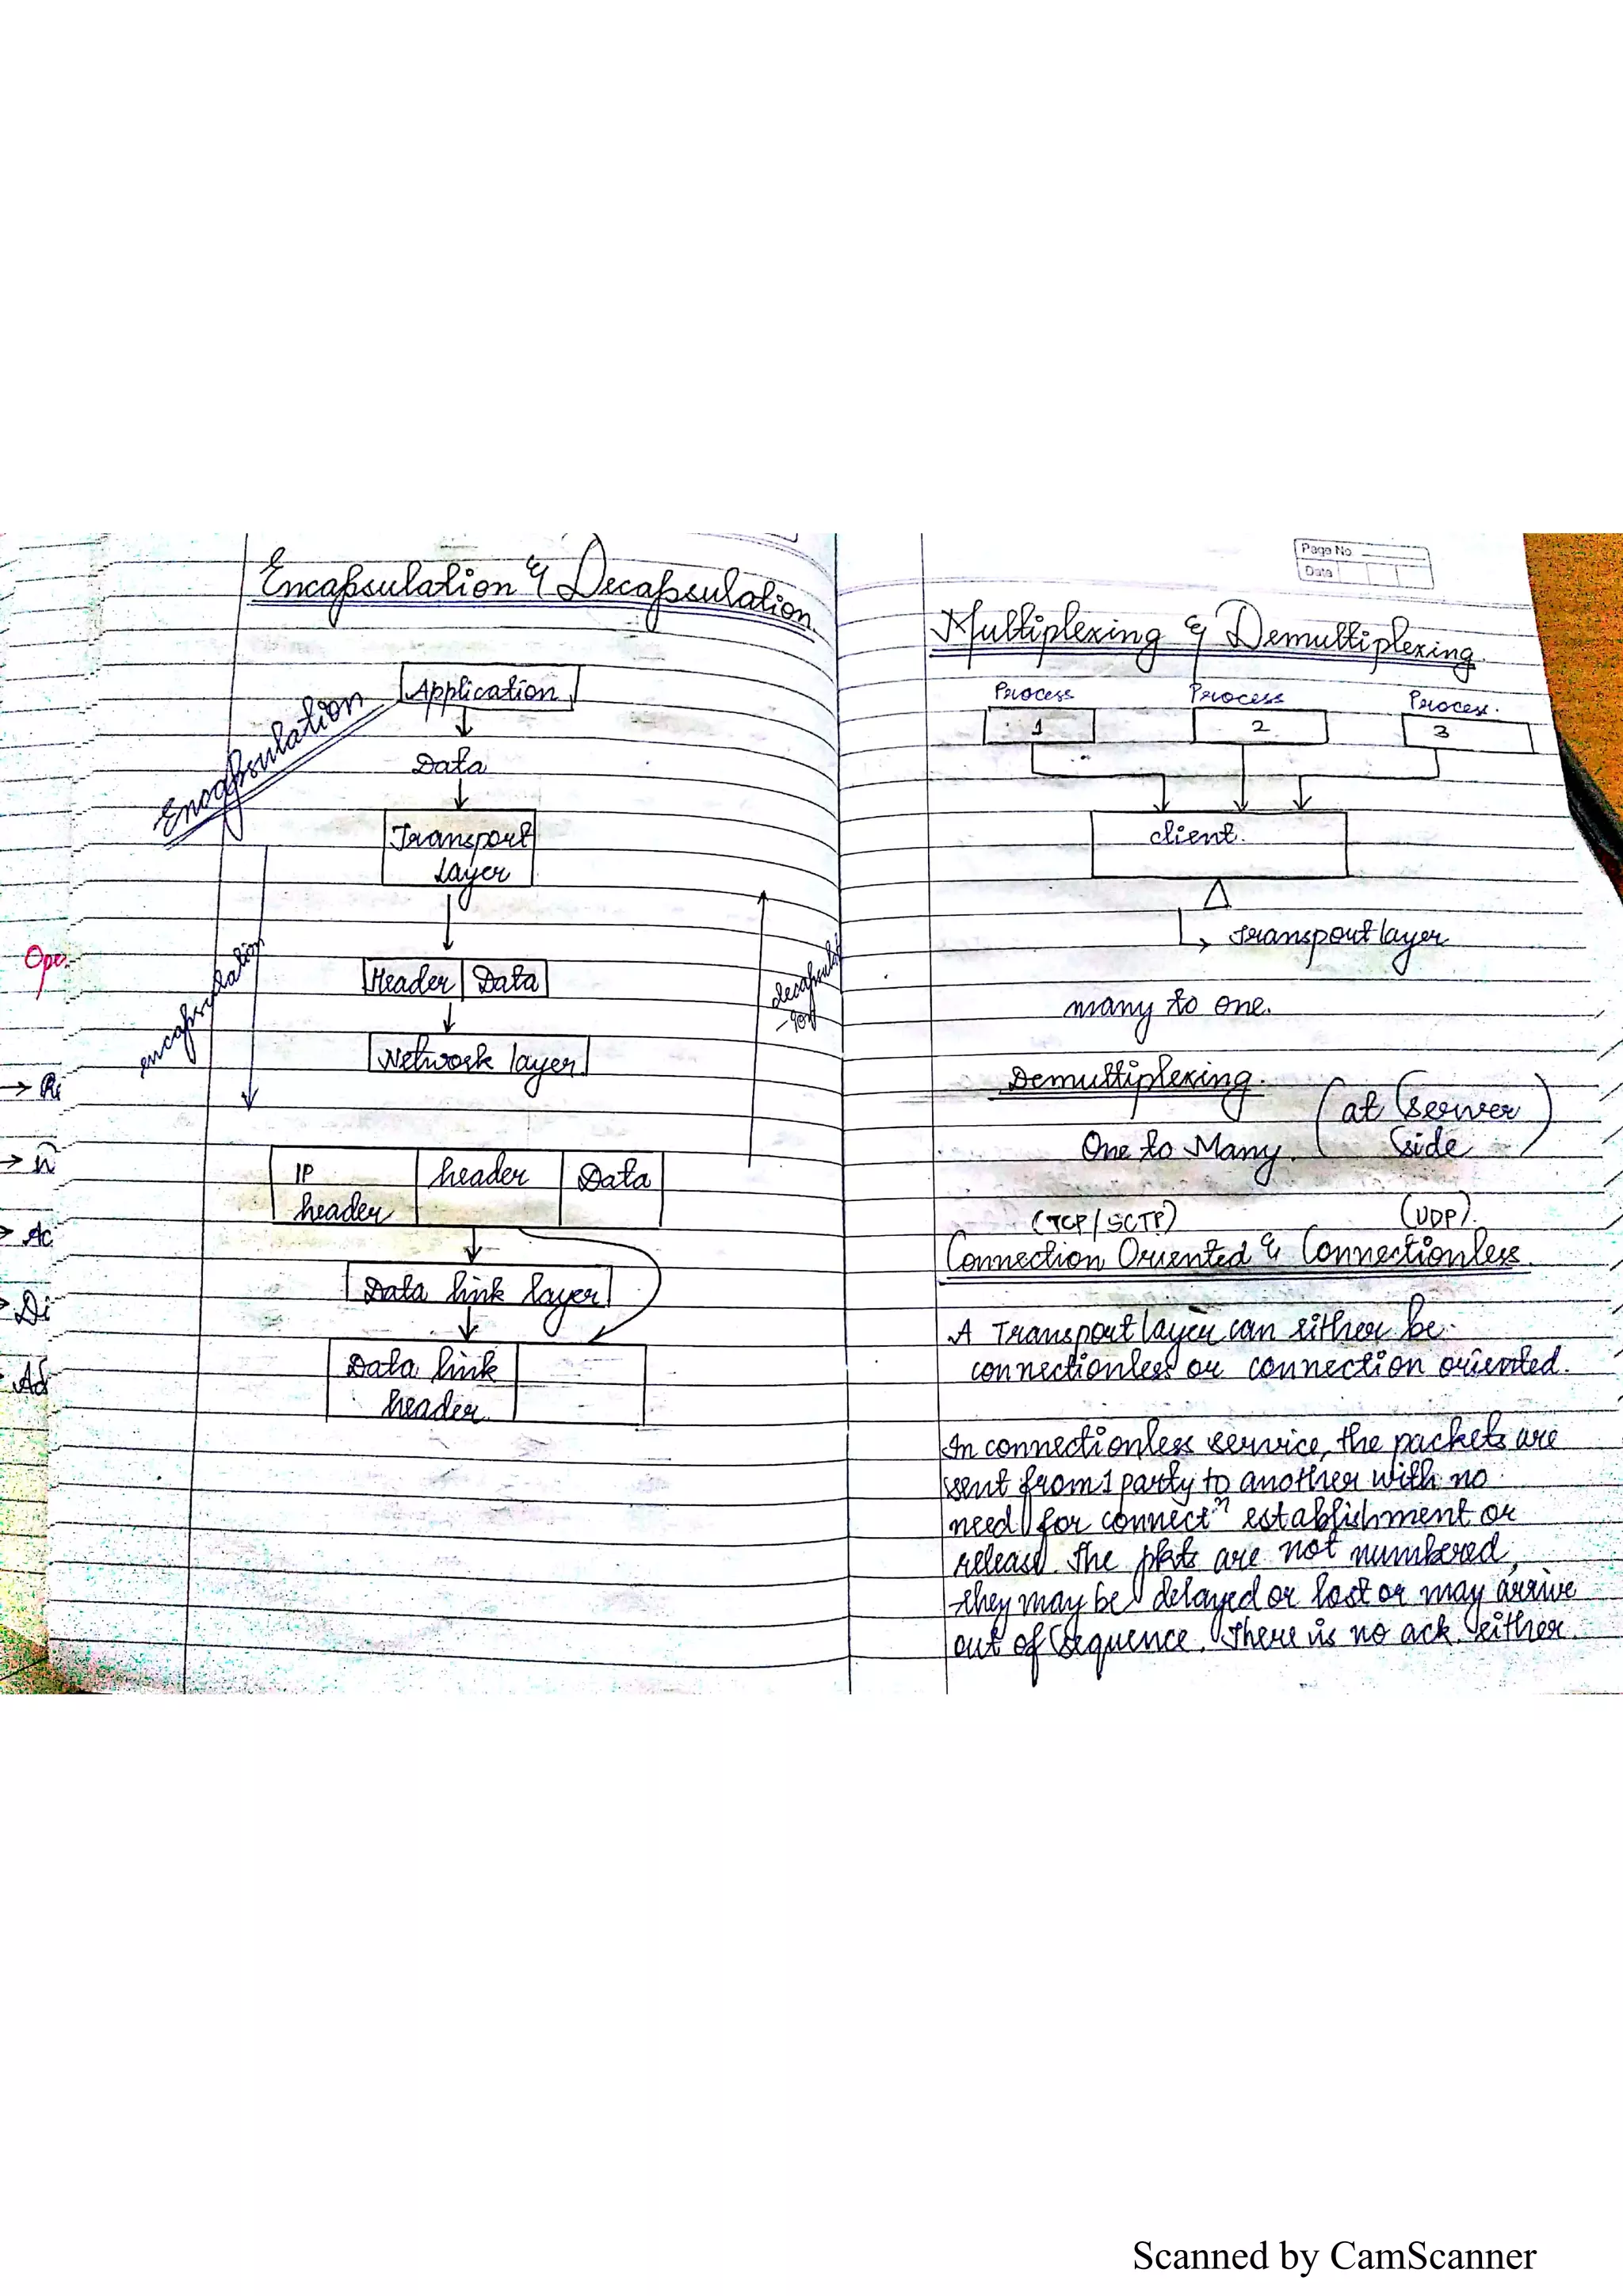 Encapsulation & Decapsulation
Application
Encapsulation
Data
Transport
layer
Header Data
Network layer
encapsulation
decapsulat
-ion
IP header Data
header
Data link layer
Data link
header
Ope
→ Re
→
→ Ac
→ Di
Ad
Page No
Date
Multiplexing & Demultiplexing.
Process Process Process.
1 2 3
client.
→ Transport layer
many to one.
Demultiplexing.
One to Many. (at server
side)
(TCP/SCTP) (UDP).
Connection Oriented & Connectionless.
A Transport layer can either be
connectionless or connection oriented.
In connectionless service, the packets are
sent from 1 party to another with no
need for connectⁿ establishment or
release. The pkts are not numbered,
they may be delayed or lost or may arrive
out of sequence. There is no ack. either.
Scanned by CamScanner